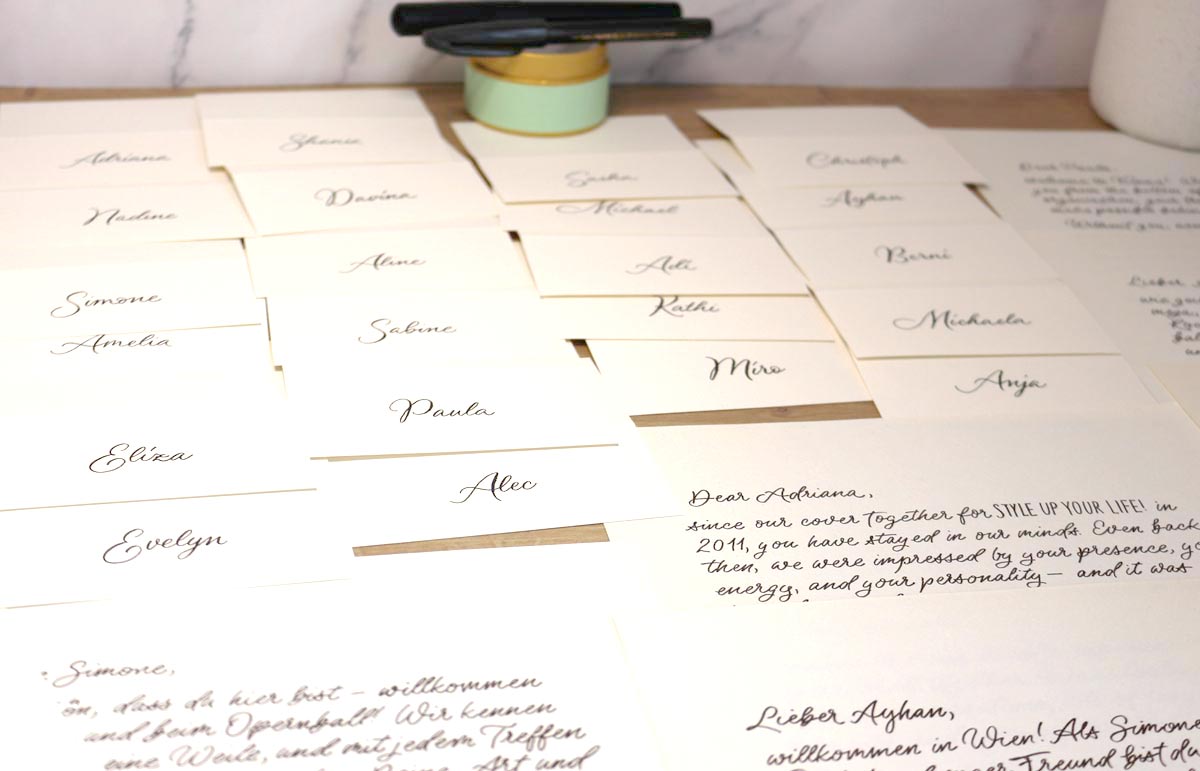 Adriana
Nadine
Simone
Amelia
Eliza
Evelyn
Shanie
Davina
Aline
Sabine
Paula
Alec
Sasha
Michael
Adi
Kathi
Miro
Christoph
Ayhan
Berni
Michaela
Anja
Dear
you from the
Without you,
Lieber
Dear Adriana,
since our cover together for STYLE UP YOUR LIFE! in
2011, you have stayed in our minds. Even back
then, we were impressed by your presence,
energy, and your personality — and it was
Simone,
dass du hier bist — willkommen
und beim Opernball! Wir kennen
eine Weile, und mit jedem Treffen
Art und
Lieber Ayhan,
willkommen in Wien! Als Simone
Freund bist du